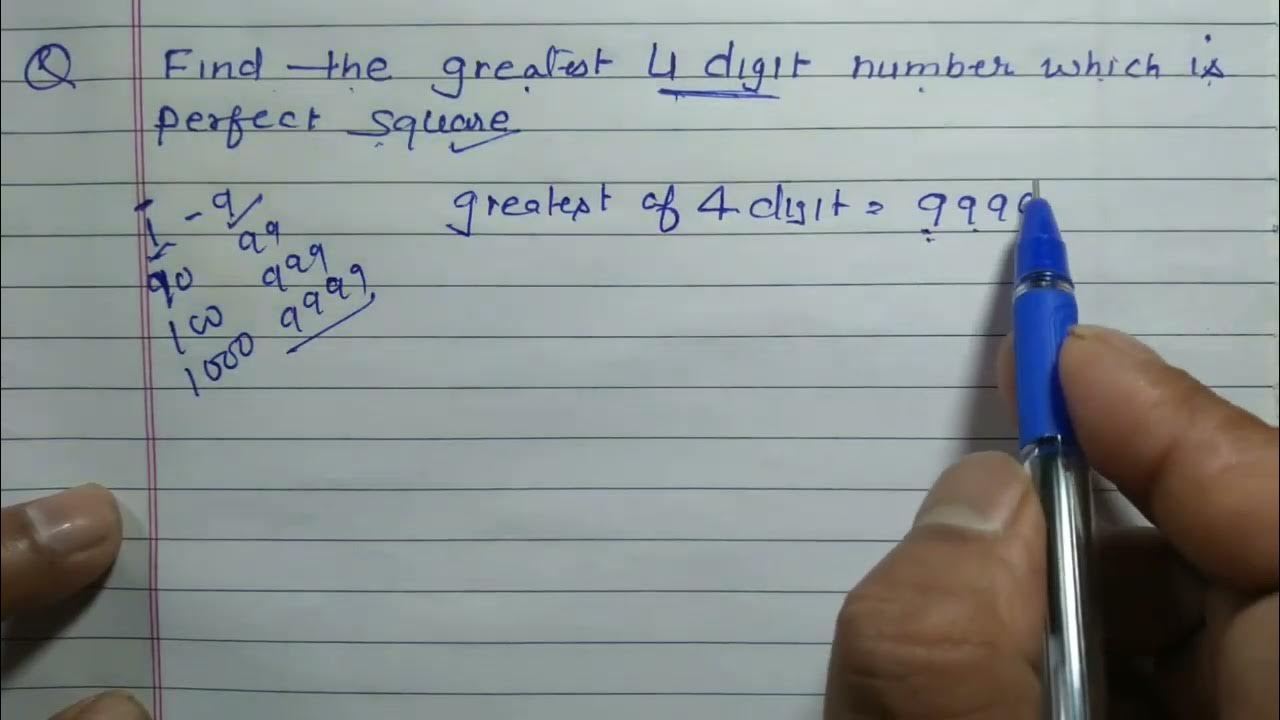 Q Find the greatest 4 digit number which is
perfect square
greatest of 4 digit = 9999
1 - 9
90 99
100 999
1000 9999